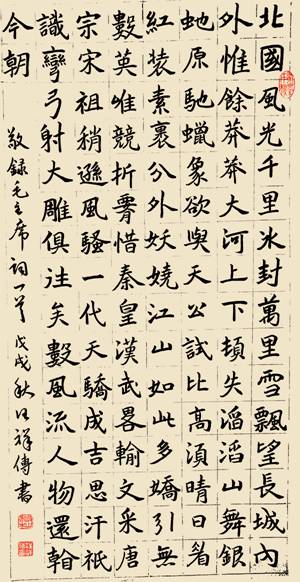 北國風光千里冰封萬里雪飄望長城內
外惟餘莽莽大河上下頓失滔滔山舞銀
虵原馳蠟象欲與天公試比高須晴日看
紅裝素裹分外妖嬈江山如此多嬌引無
數英唯競折腰惜秦皇漢武畧輸文采唐
宗宋祖稍遜風騷一代天驕成吉思汗祇
識彎弓射大雕俱往矣數風流人物還看
今朝
敬錄毛主席詞一首戊戌秋汪祥傳書